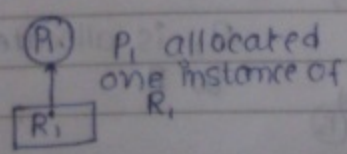 P₁
P₁ allocated
one instance of
R₁
R₁